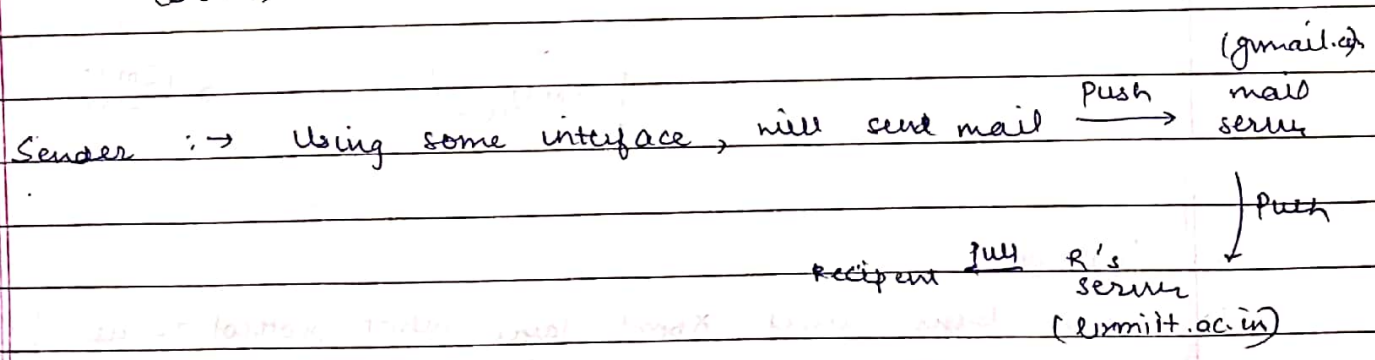 (gmail.co
Push mail
Sender :→ Using some interface, will send mail → server
Push
Recipent Pull R's
server
(lnmiit.ac.in)